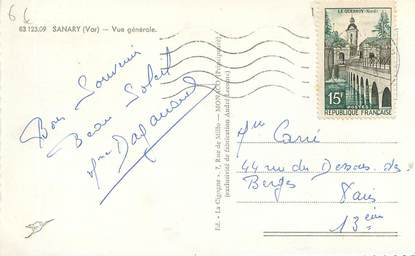 6€
83.123.09 SANARY (Var) — Vue générale.
Bon Souvenir
Beau Soleil
LE QUESNOY-Nord
15F
POSTES
REPUBLIQUE FRANÇAISE
Ed. « La Cigogne » 7, Rue de Millo — MONACO (Principauté)
(exclusivité de fabrication André Leconte)
Mr Carré
44 rue du Dessous des
Berges
Paris
13 eme